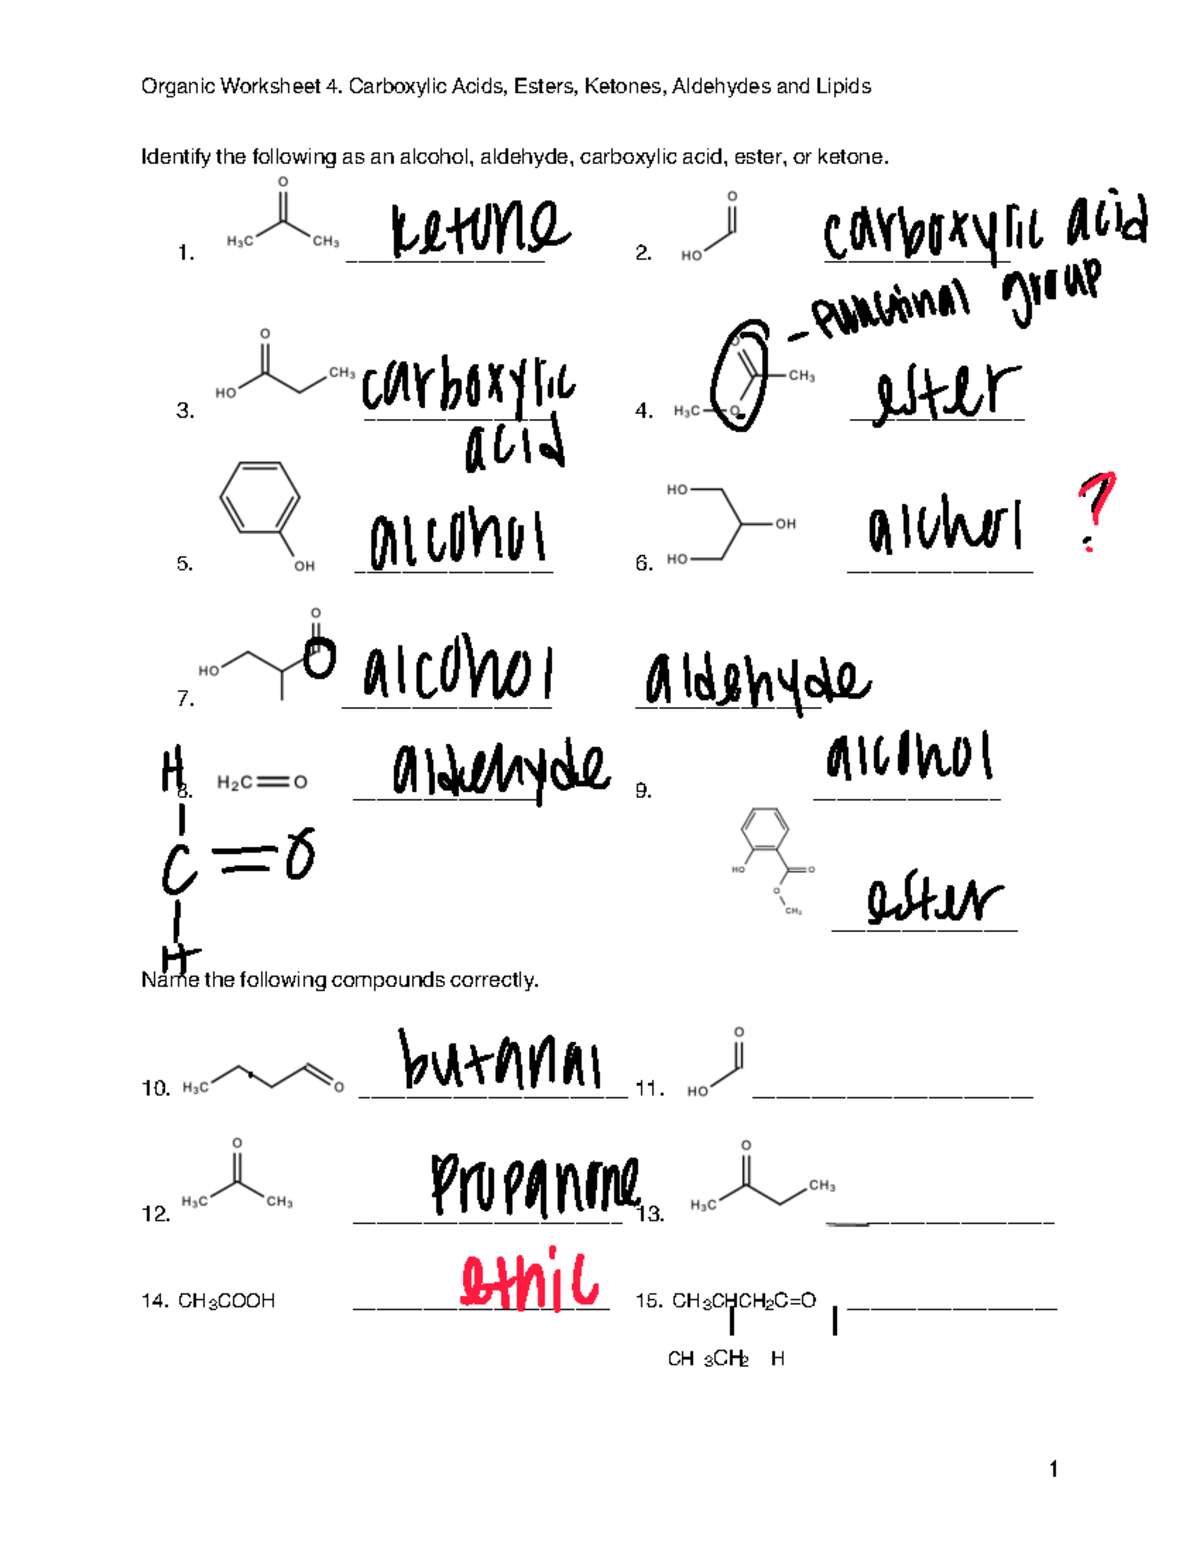 Organic Worksheet 4. Carboxylic Acids, Esters, Ketones, Aldehydes and Lipids
Identify the following as an alcohol, aldehyde, carboxylic acid, ester, or ketone.
O
H₃C CH₃
1. ketone
O
HO
2. carboxylic acid
- functional group
O
HO CH₃
3. carboxylic
acid
O
CH₃
H₃C O
4. ester
OH
5. alcohol
HO
OH
HO
6. alchol ?
O
HO
7. alcohol aldehyde
8. H₂C O aldehyde
H
C = O
H
9. alcohol
HO O
O
CH₃
ester
Name the following compounds correctly.
10. H₃C O butanal
O
11. HO
O
12. H₃C CH₃ propanone
O
13. H₃C CH₃
14. CH₃COOH ethic
15. CH₃CHCH₂C=O
CH ₃CH₂ H
1